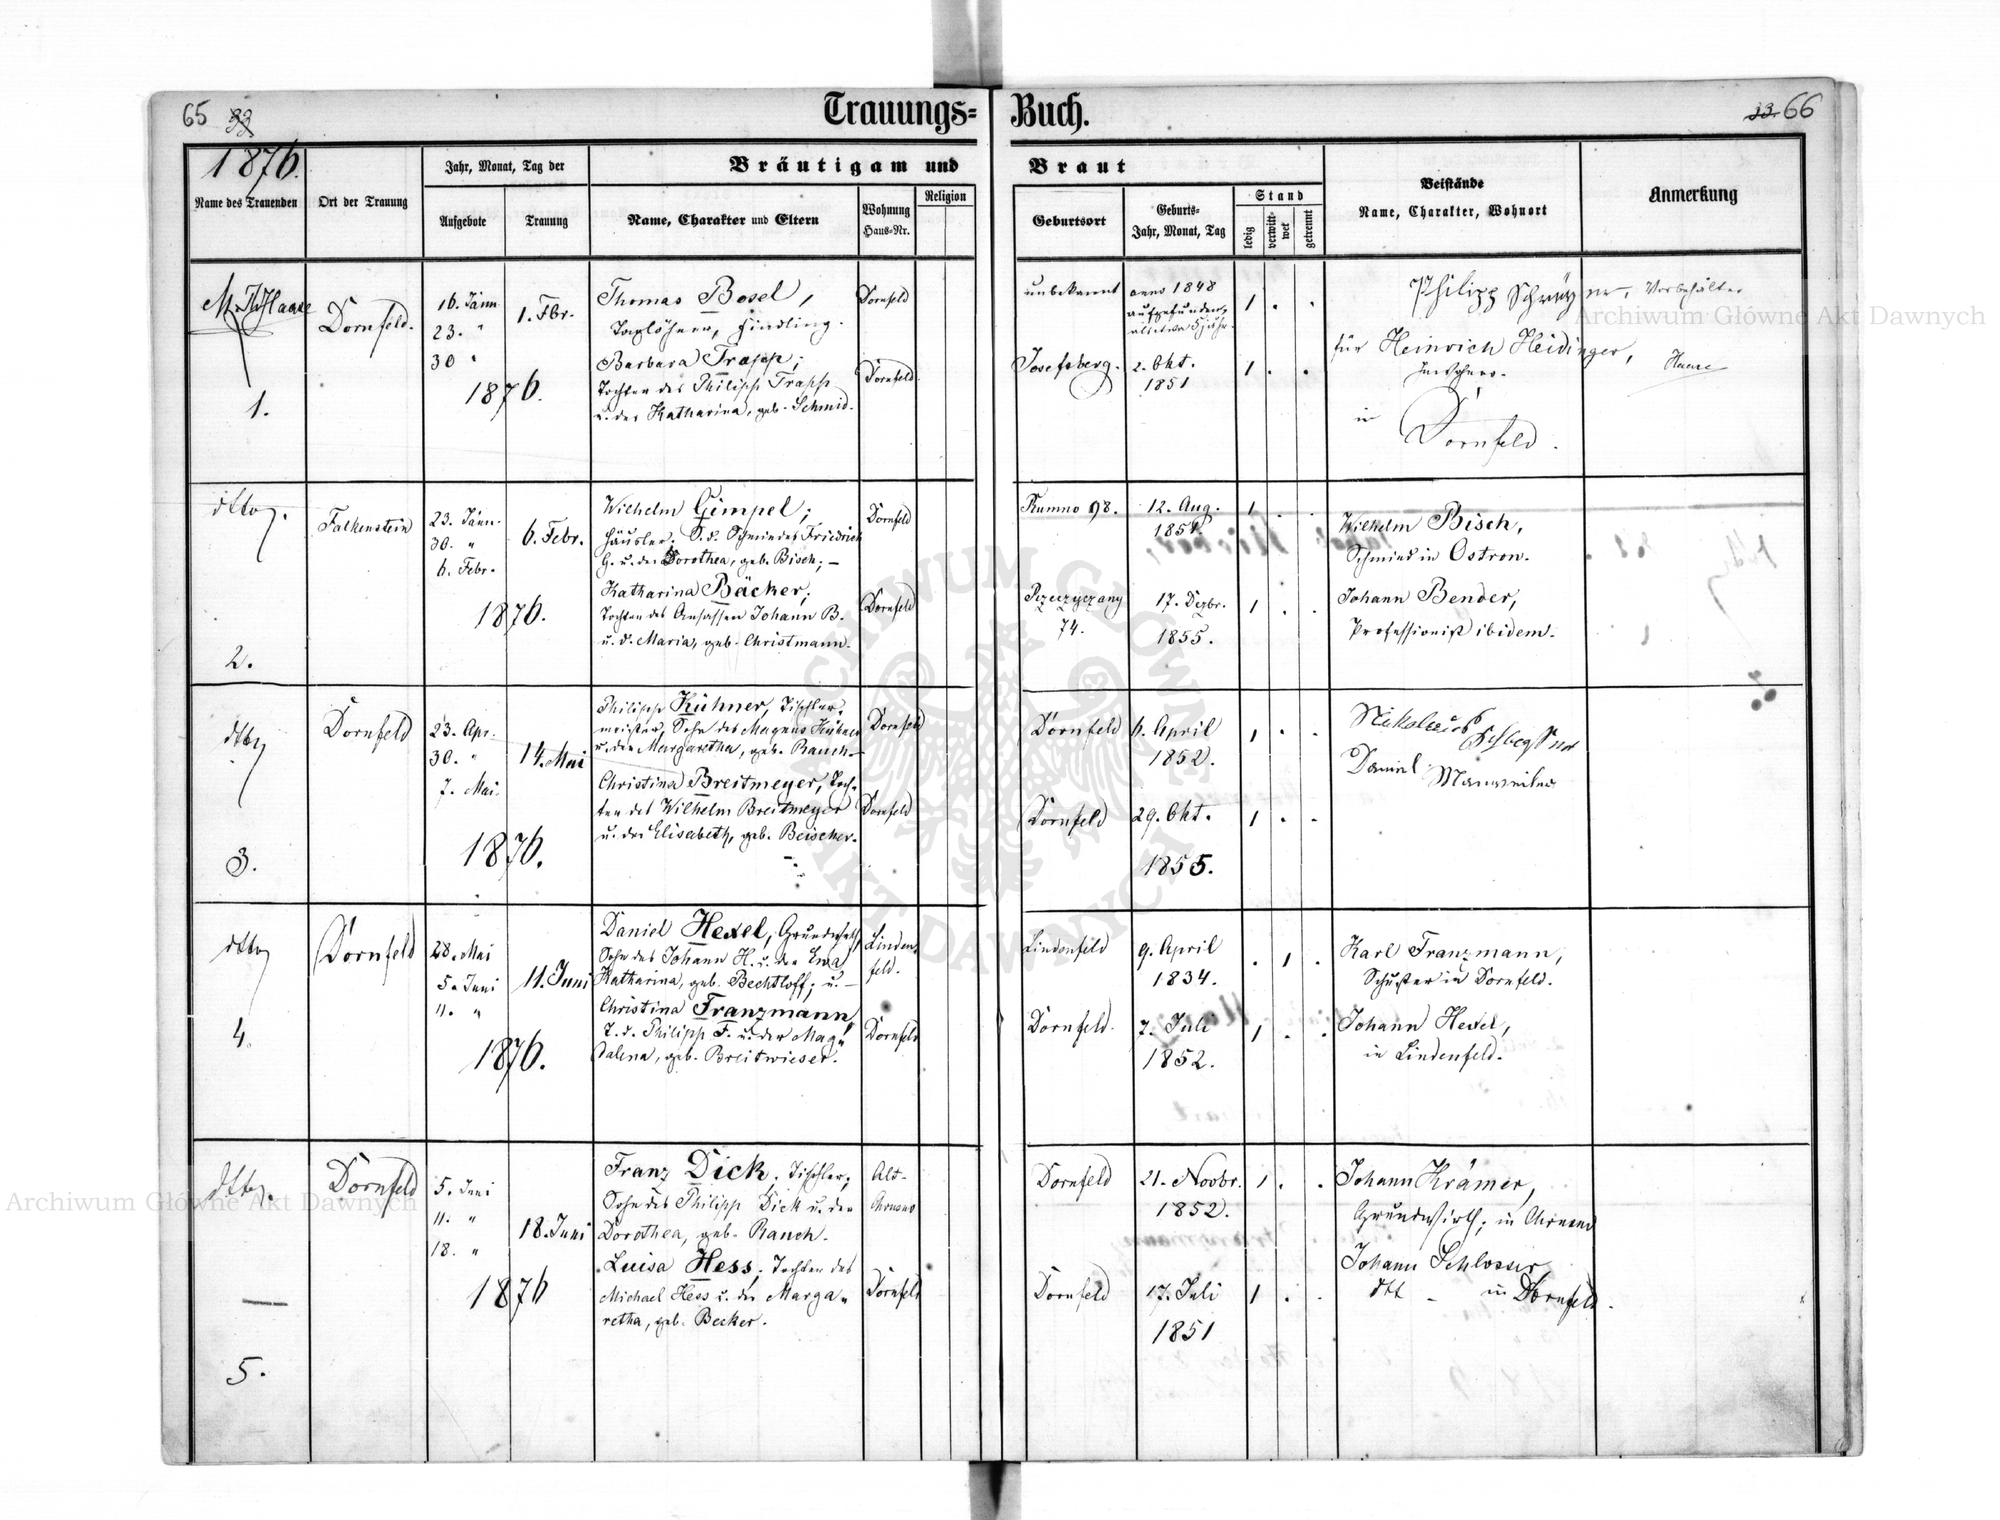 65 33
Trauungs= Buch.
33. 66
1876.
Name des Trauenden
Ort der Trauung
Jahr, Monat, Tag der
Aufgebote
Trauung
Bräutigam und Braut
Name, Charakter und Eltern
Wohnung
Haus-Nr.
Religion
Geburtsort
Geburts-
Jahr, Monat, Tag
Stand
ledig
verwitt-
wet
getrennt
Beistände
Name, Charakter, Wohnort
Anmerkung
Haase
1.
Dornfeld.
16. Jänn.
23. "
30 "
1. Fbr.
1876.
Thomas Bosel,
Taglöhner, Findling.
Barbara Trapp;
Tochter des Philipp Trapp
u. der Katharina, geb. Schmid.
Dornfeld
Dornfeld.
unbekannt
anno 1848
aufgefunden,
1 . .
Josefsberg.
2. Okt.
1851
1 . .
Philipp
für Heinrich Heidinger,
in
Dornfeld.
Haase
dtto.
2.
Falkenstein
23. Jänn.
30. "
6. Febr.
6. Febr.
1876.
Wilhelm Gimpel;
Häusler. S. d. Schmiedes Friedrich
G. u. der Dorothea, geb. Bisch; —
Katharina Bäcker;
Tochter des Ansassen Johann B.
u. d. Maria, geb. Christmann.
Dornfeld
Dornfeld
Rumno 98.
12. Aug.
1851.
1 . .
74.
17. Dezbr.
1855.
1 . .
Wilhelm Bisch,
Schmied in Ostrow.
Johann Bender,
Professionist ibidem.
dtto
3.
Dornfeld
23. Apr.
30. "
7. Mai.
14. Mai
1876.
Philipp Kühner, Tischler-
meister, Sohn des Magnus Kühner
u. der Margaretha, geb. Rauch.—
Christina Breitmeyer, Toch-
ter des Wilhelm Breitmeyer
u. der Elisabeth, geb. Beischer.
Dornfeld
Dornfeld
Dornfeld
6. April
1852.
1 . .
Dornfeld
29. Okt.
1855.
1 . .
Nikolaus
Daniel Manweiler
dtto
4.
Dornfeld
28. Mai
5. Juni
11. "
11. Juni
1876.
Daniel Hexel, Grundwirth
Sohn des Johann H. u. der Eva
Katharina, geb. Bechtloff; u. —
Christina Franzmann,
T. d. Philipp F. u. der Mag-
dalena, geb. Breitwieser.
Linden-
feld.
Dornfeld
Lindenfeld
9. April
1834.
. 1 .
Dornfeld.
7. Juli
1852.
1 . .
Karl Franzmann,
Schuster in Dornfeld.
Johann Hexel,
in Lindenfeld.
dtto.
5.
Dornfeld
5. Juni
11. "
18. "
18. Juni
1876
Franz Dick, Tischler,
Sohn des Philipp Dick u. der
Dorothea, geb. Rauch.
Luisa Hess, Tochter des
Michael Hess u. der Marga-
retha, geb. Becker.
Alt-
Dornfeld
Dornfeld
21. Novbr.
1852.
1 . .
Dornfeld
17. Juli
1851
1 . .
Johann Krämer,
Grundwirth, in
Johann Schlosser,
dtt — in Dornfeld.
Archiwum Główne Akt Dawnych
Archiwum Główne Akt Dawnych
ARCHIWUM GŁÓWNE AKT DAWNYCH